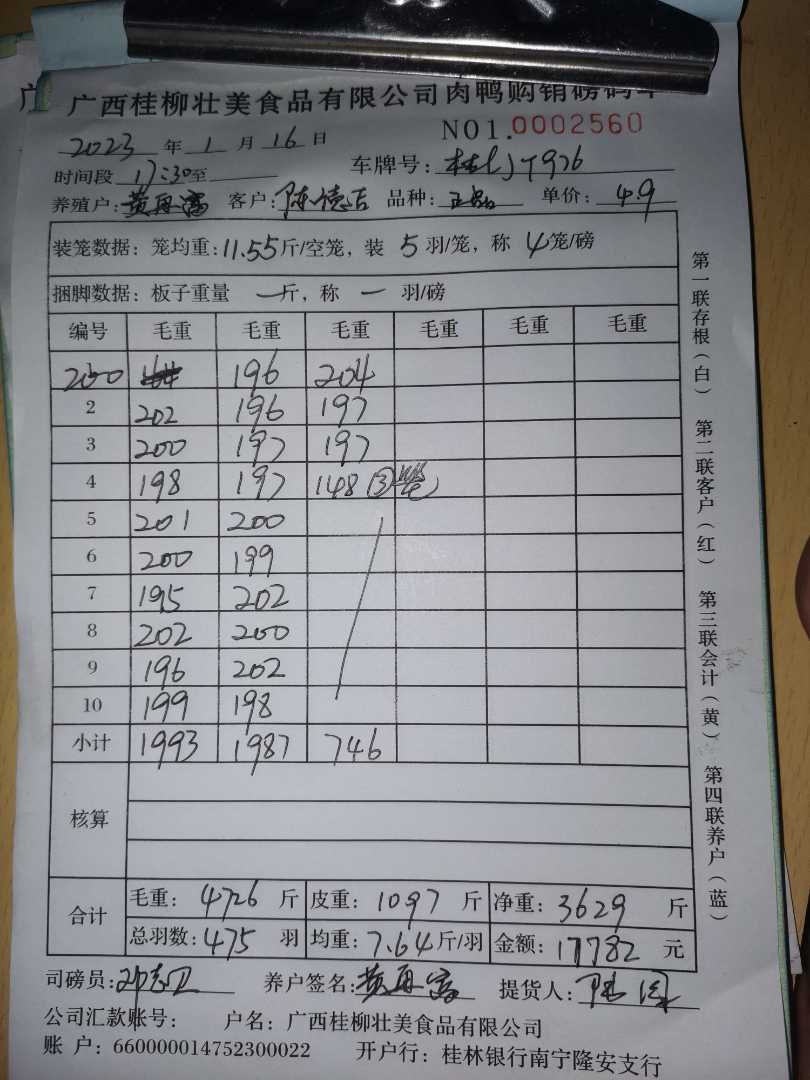 广西桂柳壮美食品有限公司肉鸭购销磅码单
NO1.0002560
2023 年 1 月 16 日
时间段 17:30 至 车牌号:
养殖户: 黄再富 客户: 陈德吉 品种: 正品 单价: 4.9
装笼数据: 笼均重: 11.55 斤/空笼, 装 5 羽/笼, 称 4 笼/磅
捆脚数据: 板子重量 一 斤, 称 一 羽/磅
编号 毛重 毛重 毛重 毛重 毛重 毛重
200 196 204
2 202 196 197
3 200 197 197
4 198 197 148 ③笼
5 201 200
6 200 199
7 195 202
8 202 200
9 196 202
10 199 198
小计 1993 1987 746
核算
合计 毛重: 4726 斤 皮重: 1097 斤 净重: 3629 斤
总羽数: 475 羽 均重: 7.64 斤/羽 金额: 17782 元
司磅员: 养户签名: 黄再富 提货人:
公司汇款账号: 户名: 广西桂柳壮美食品有限公司
账 户: 660000014752300022 开户行: 桂林银行南宁隆安支行
第一联存根(白) 第二联客户(红) 第三联会计(黄) 第四联养户(蓝)